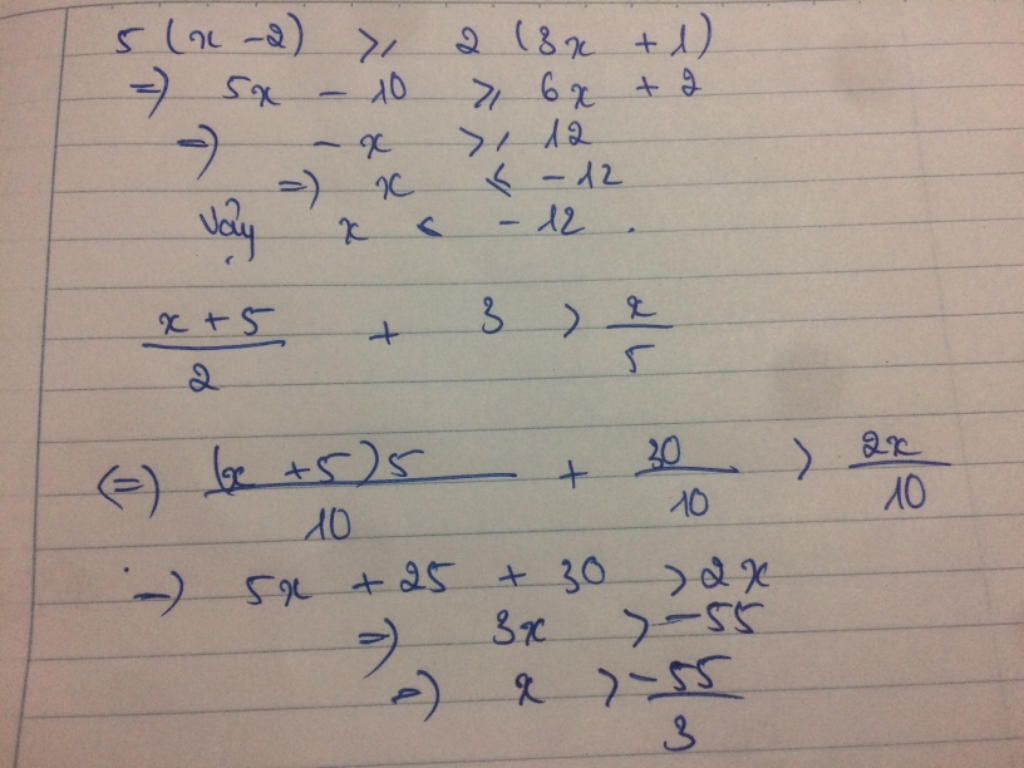 5 (x - 2) ≥ 2 (3x + 1)
=) 5x - 10 ≥ 6x + 2
=) - x ≥ 12
=) x ≤ - 12
Vậy x < - 12 .
\frac{x + 5}{2} + 3 > \frac{x}{5}
(=) \frac{(x + 5) 5}{10} + \frac{30}{10} > \frac{2x}{10}
=) 5x + 25 + 30 > 2x
=) 3x > - 55
=) x > \frac{- 55}{3}